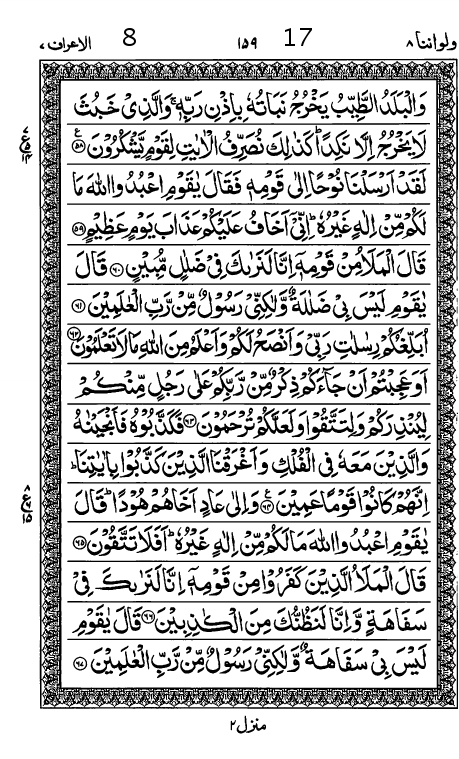 ولواننا ٨ 17 ١٥٩ 8 الاعراف ٧
وَالْبَلَدُ الطَّيِّبُ يَخْرُجُ نَبَاتُهٗ بِاِذْنِ رَبِّهٖ ۚ وَالَّذِىْ خَبُثَ
لَا يَخْرُجُ اِلَّا نَكِدًا ؕ كَذٰلِكَ نُصَرِّفُ الْاٰيٰتِ لِقَوْمٍ يَّشْكُرُوْنَ ۠﴿٥٨﴾
لَقَدْ اَرْسَلْنَا نُوْحًا اِلٰى قَوْمِهٖ فَقَالَ يٰقَوْمِ اعْبُدُوا اللّٰهَ مَا
لَكُمْ مِّنْ اِلٰهٍ غَيْرُهٗ ؕ اِنِّىْۤ اَخَافُ عَلَيْكُمْ عَذَابَ يَوْمٍ عَظِيْمٍ ﴿٥٩﴾
قَالَ الْمَلَاُ مِنْ قَوْمِهٖۤ اِنَّا لَنَرٰىكَ فِىْ ضَلٰلٍ مُّبِيْنٍ ﴿٦٠﴾ قَالَ
يٰقَوْمِ لَيْسَ بِىْ ضَلٰلَةٌ وَّلٰكِنِّىْ رَسُوْلٌ مِّنْ رَّبِّ الْعٰلَمِيْنَ ﴿٦١﴾
اُبَلِّغُكُمْ رِسٰلٰتِ رَبِّىْ وَاَنْصَحُ لَكُمْ وَاَعْلَمُ مِنَ اللّٰهِ مَا لَا تَعْلَمُوْنَ ﴿٦٢﴾
اَوَعَجِبْتُمْ اَنْ جَآءَكُمْ ذِكْرٌ مِّنْ رَّبِّكُمْ عَلٰى رَجُلٍ مِّنْكُمْ
لِيُنْذِرَكُمْ وَلِتَتَّقُوْا وَلَعَلَّكُمْ تُرْحَمُوْنَ ﴿٦٣﴾ فَكَذَّبُوْهُ فَاَنْجَيْنٰهُ
وَالَّذِيْنَ مَعَهٗ فِى الْفُلْكِ وَاَغْرَقْنَا الَّذِيْنَ كَذَّبُوْا بِاٰيٰتِنَا ؕ
اِنَّهُمْ كَانُوْا قَوْمًا عَمِيْنَ ۠﴿٦٤﴾ وَاِلٰى عَادٍ اَخَاهُمْ هُوْدًا ؕ قَالَ
يٰقَوْمِ اعْبُدُوا اللّٰهَ مَا لَكُمْ مِّنْ اِلٰهٍ غَيْرُهٗ ؕ اَفَلَا تَتَّقُوْنَ ﴿٦٥﴾
قَالَ الْمَلَاُ الَّذِيْنَ كَفَرُوْا مِنْ قَوْمِهٖۤ اِنَّا لَنَرٰىكَ فِىْ
سَفَاهَةٍ وَّاِنَّا لَنَظُنُّكَ مِنَ الْكٰذِبِيْنَ ﴿٦٦﴾ قَالَ يٰقَوْمِ
لَيْسَ بِىْ سَفَاهَةٌ وَّلٰكِنِّىْ رَسُوْلٌ مِّنْ رَّبِّ الْعٰلَمِيْنَ ﴿٦٧﴾
منزل ٢